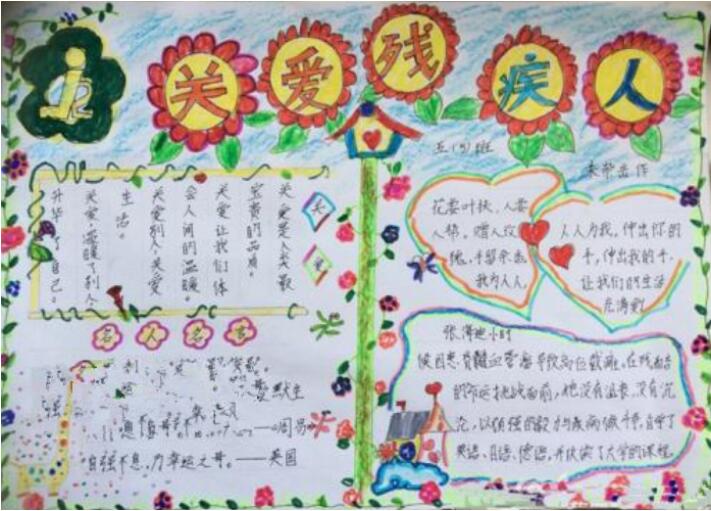 关爱残疾人
五(5)班
关爱是人类最
宝贵的品质。
关爱让我们体
会人间的温暖。
关爱别人,关爱
生活。
关爱,温暖了别人,
升华了自己。
关
爱
花要叶扶,人要
人帮。赠人玫
瑰,手留余香
我为人人
人人为我,伸出你的
手,伸出我的手,
让我们的生活
充满
名人名言
——《周易》
自强不息,力幸运之母。——英国
张海迪小时
候因患脊髓血管瘤导致高位截瘫。在残酷
的命运挑战面前,她没有沮丧,没有沉
沦,以顽强的毅力与疾病做斗争,自学了
英语、日语、德语,并
大学的课程